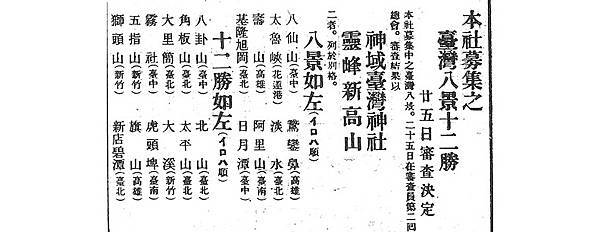 本社募集之
臺灣八景十二勝
廿五日審査決定
本社募集中之臺灣八景。二十五日在審査員第二回
總會。審査結果以
神域臺灣神社
靈峰新高山
二者。列於別格。
八景如左(イロハ順)
八仙山(臺中) 鵞鑾鼻(高雄)
太魯峽(花蓮港) 淡水(臺北)
壽山(高雄) 阿里山(臺南)
基隆旭岡(臺北) 日月潭(臺中)
十二勝如左(イロハ順)
八卦山(臺中) 北山(臺北)
角板山(新竹) 太平山(臺北)
大里簡(臺北) 大溪(新竹)
霧社(臺中) 虎頭埤(臺南)
五指山(新竹) 旗山(高雄)
獅頭山(新竹) 新店碧潭(臺北)